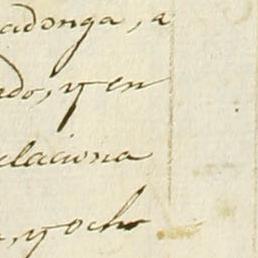 adonga, a
ado, y en
elaciona
, y ocho